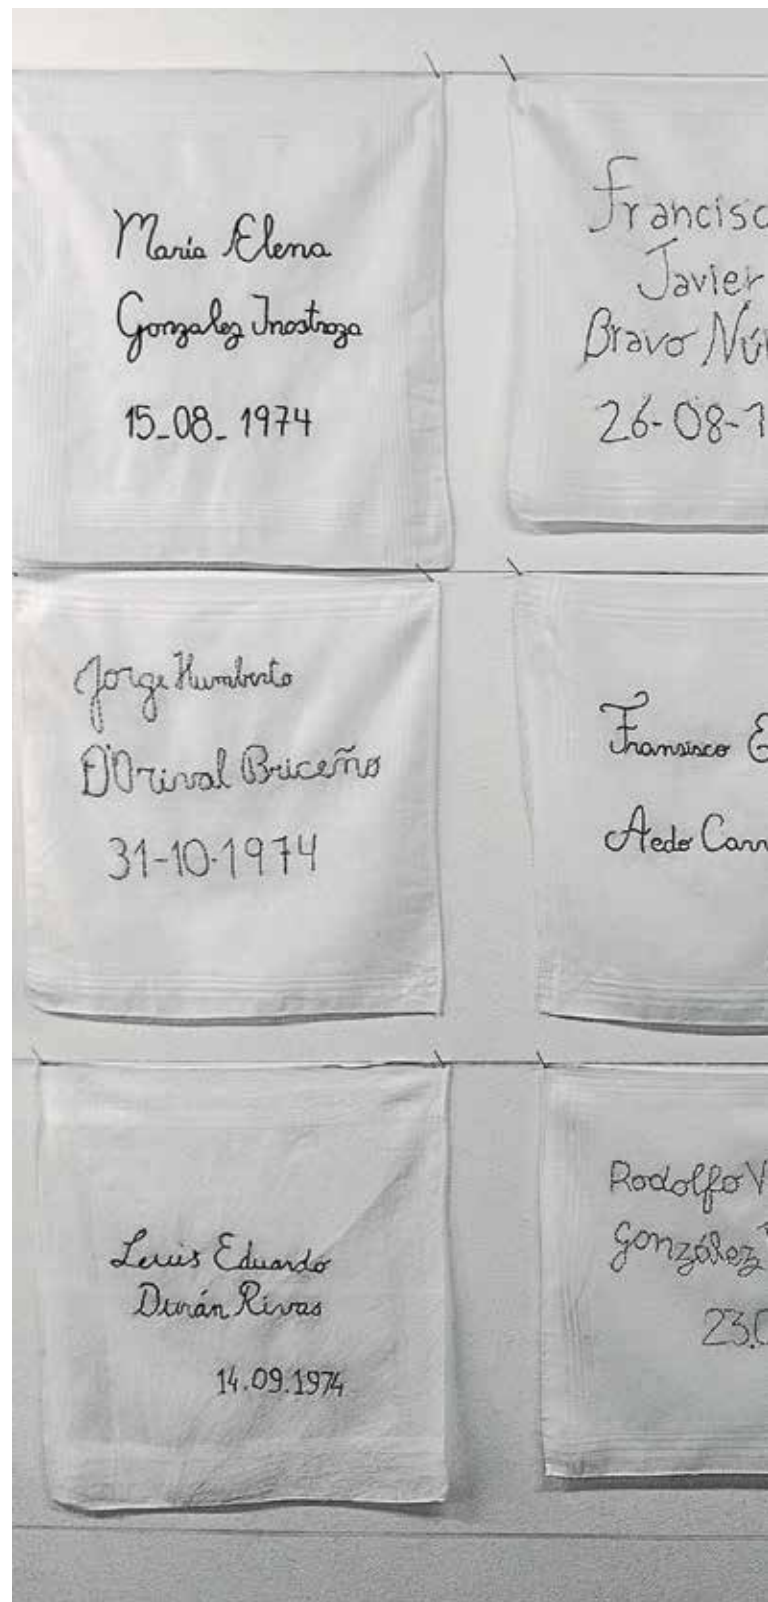 María Elena
Gonzalez Inostroza
15_08_1974
Francisc
Javier
Bravo Nú
26-08-1
Jorge Humberto
D'Orival Briceño
31-10-1974
Fransisco E
Aedo Carr
Luis Eduardo
Durán Rivas
14.09.1974
Rodolfo V
González
23.0